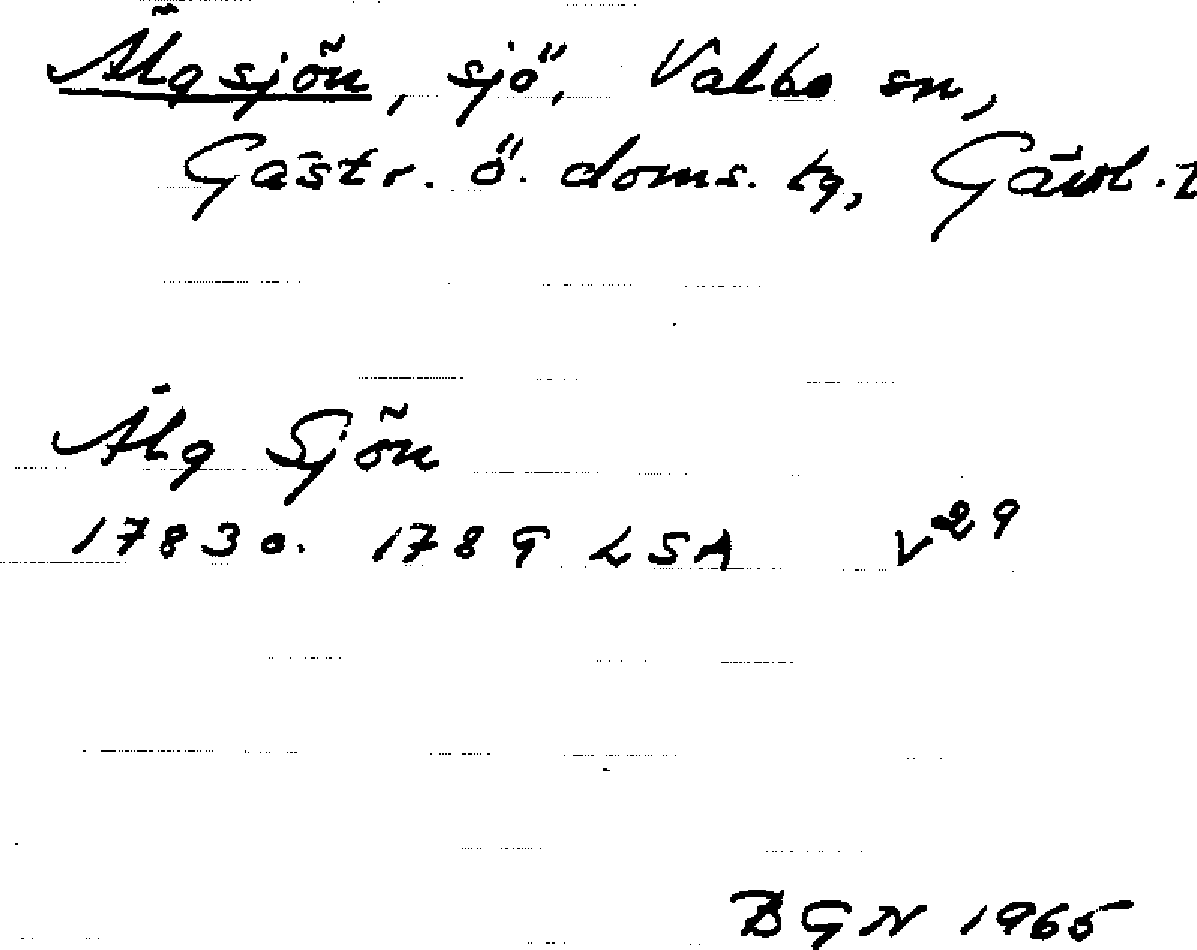 Älgsjön, sjö, Valbo sn,
Gästr. ö. doms. tg, Gävl. l
Älg Sjön
1783 o. 1789 LSA V29
BGN 1965